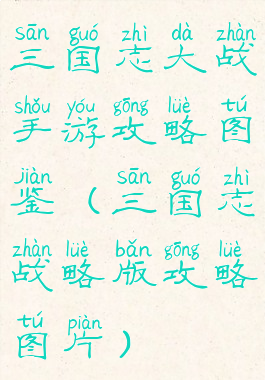 sān guó zhì dà zhàn
三国志大战
shǒu yóu gōng lüè tú
手游攻略图
jiàn sān guó zhì
鉴(三国志
zhàn lüè bǎn gōng lüè
战略版攻略
tú piàn
图片)